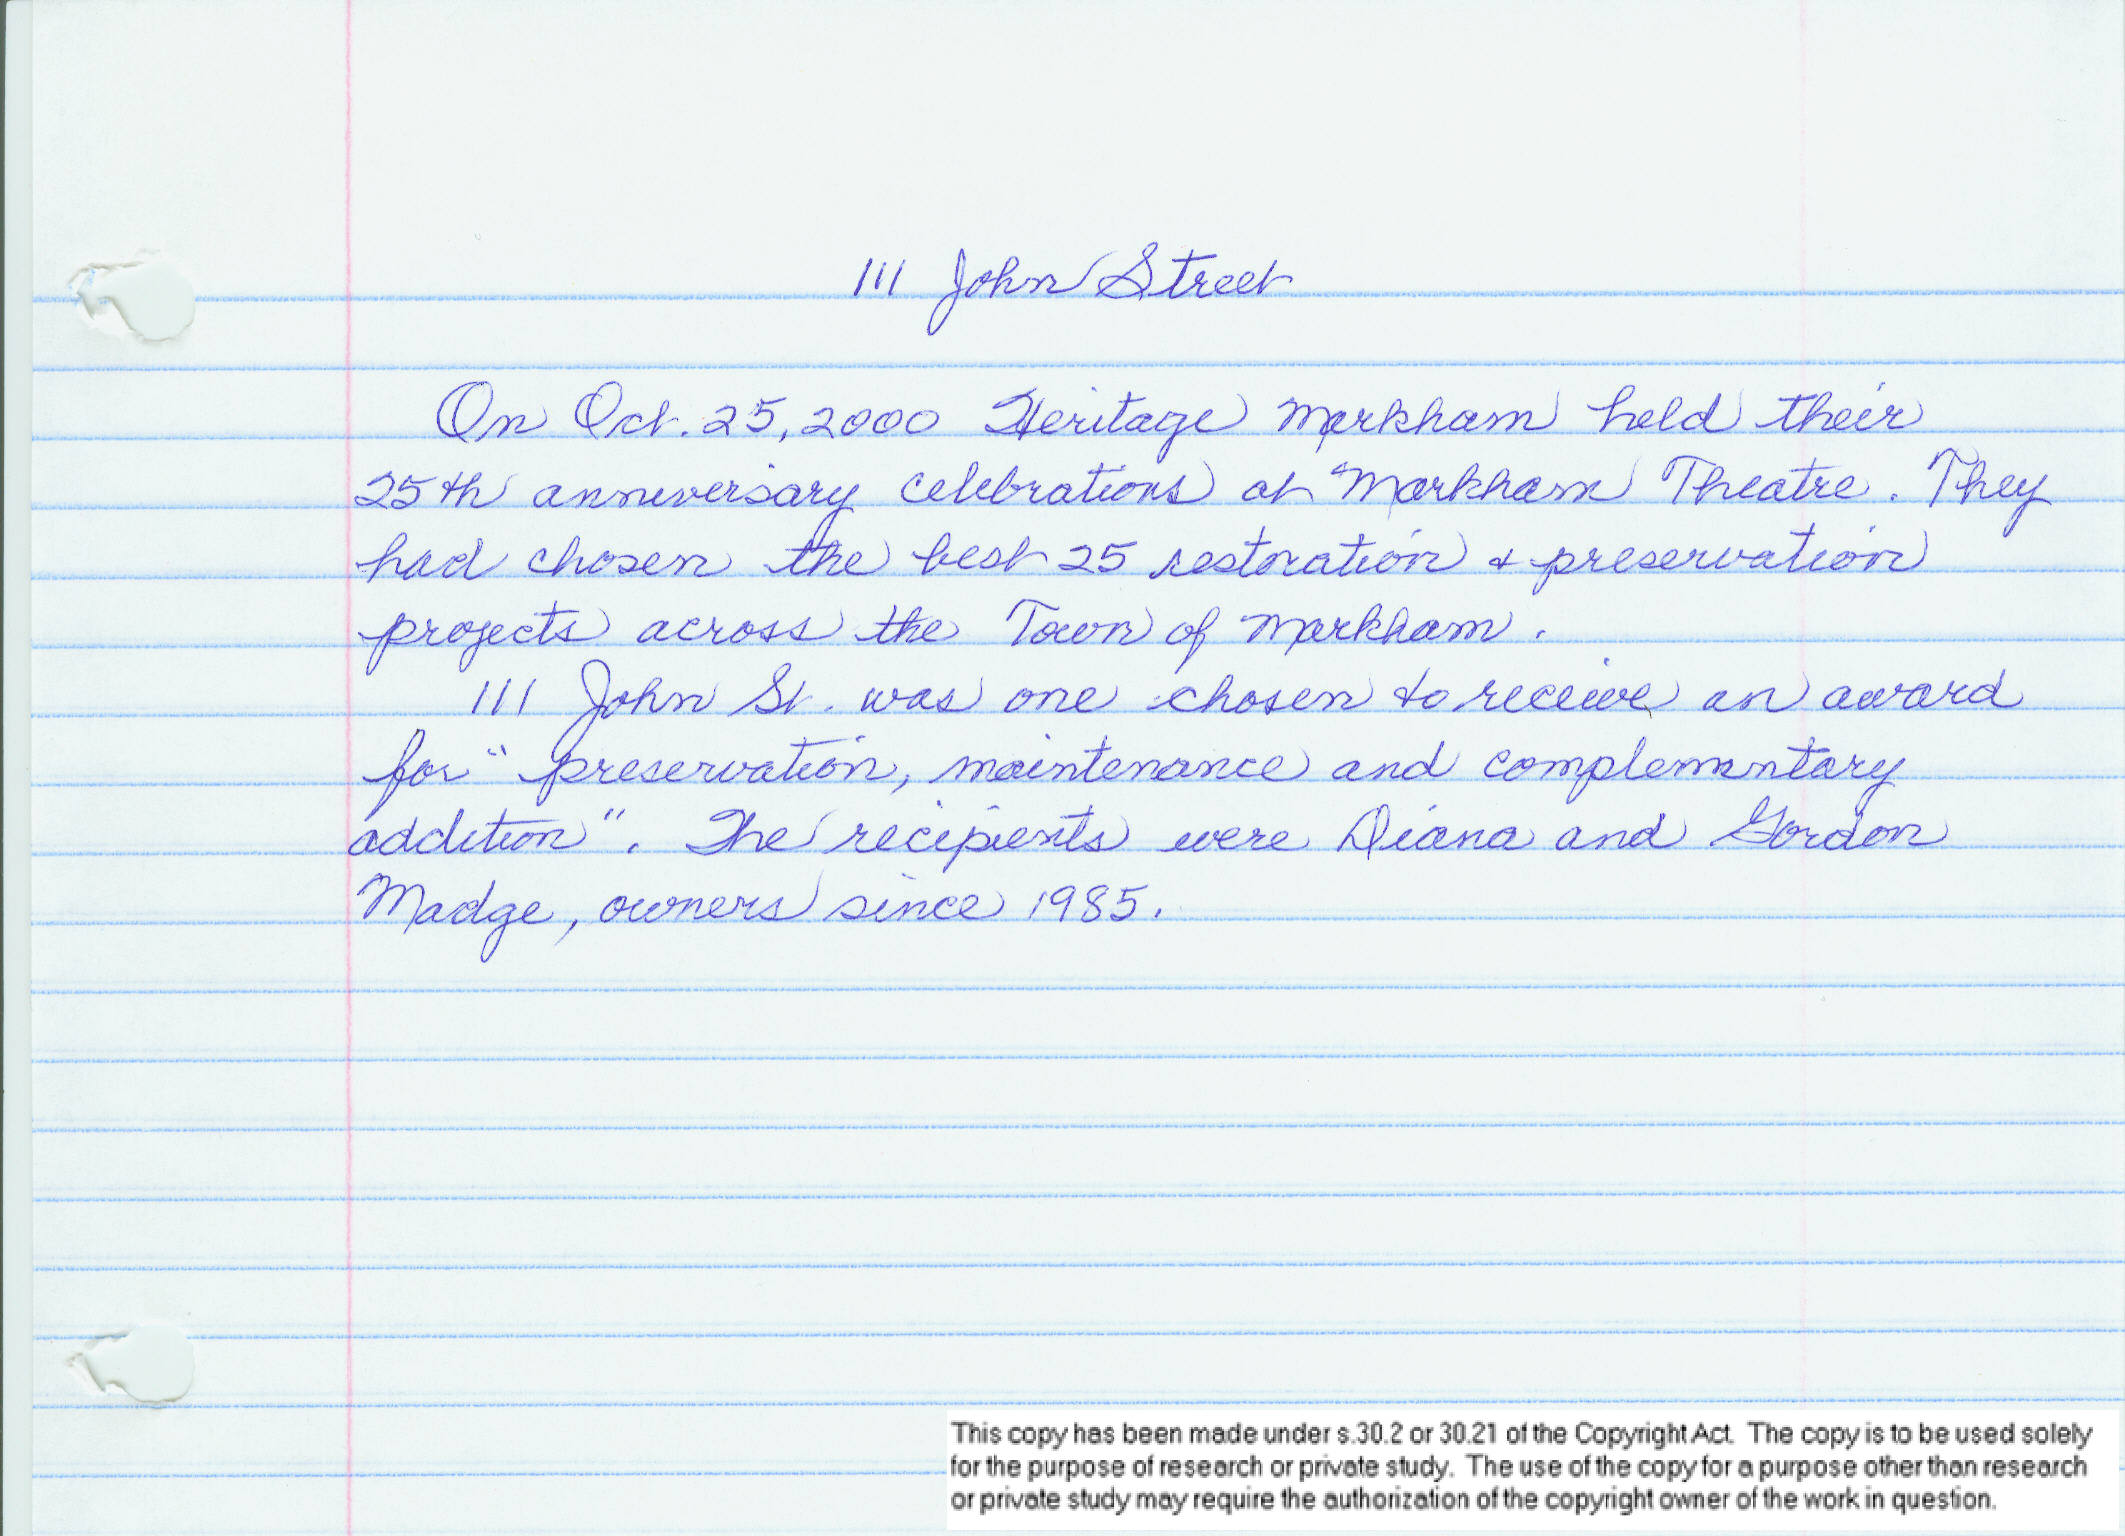 111 John Street
On Oct. 25, 2000 Heritage Markham held their
25th anniversary celebrations at Markham Theatre. They
had chosen the best 25 restoration & preservation
projects across the Town of Markham.
111 John St. was one chosen to receive an award
for "preservation, maintenance and complementary
addition". The recipients were Diana and Gordon
Madge, owners since 1985.
This copy has been made under s.30.2 or 30.21 of the Copyright Act. The copy is to be used solely
for the purpose of research or private study. The use of the copy for a purpose other than research
or private study may require the authorization of the copyright owner of the work in question.